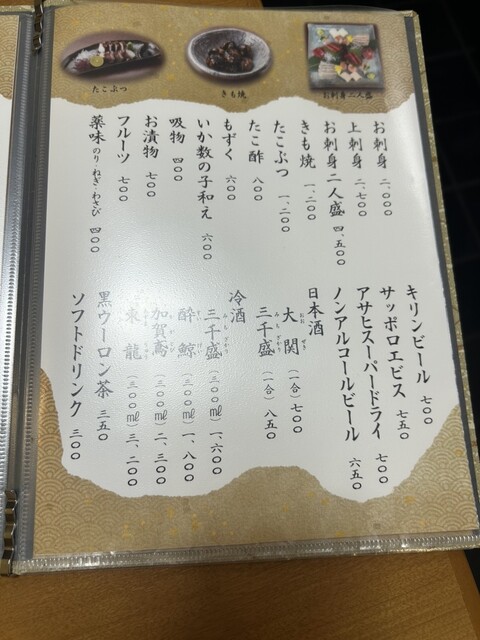 たこぶつ
きも焼
お刺身二人盛
お刺身 二、〇〇〇
上刺身 二、七〇〇
お刺身二人盛 四、五〇〇
きも焼 一、二〇〇
たこぶつ 一、二〇〇
たこ酢 八〇〇
もずく 六〇〇
いか数の子和え 六〇〇
吸物 四〇〇
お漬物 七〇〇
フルーツ 七〇〇
薬味のり・ねぎ・わさび 四〇〇
キリンビール 七〇〇
サッポロエビス 七五〇
アサヒスーパードライ 七〇〇
ノンアルコールビール 六五〇
日本酒
大関 おおぜき (一合) 七〇〇
三千盛 みちざかり (一合) 八五〇
冷酒
三千盛 みちざかり (三〇〇㎖) 一、六〇〇
酔鯨 すいげい (三〇〇㎖) 一、八〇〇
加賀鳶 かがとび (三〇〇㎖) 二、三〇〇
龍 (三〇〇㎖) 三、二〇〇
黒ウーロン茶 三五〇
ソフトドリンク 三〇〇